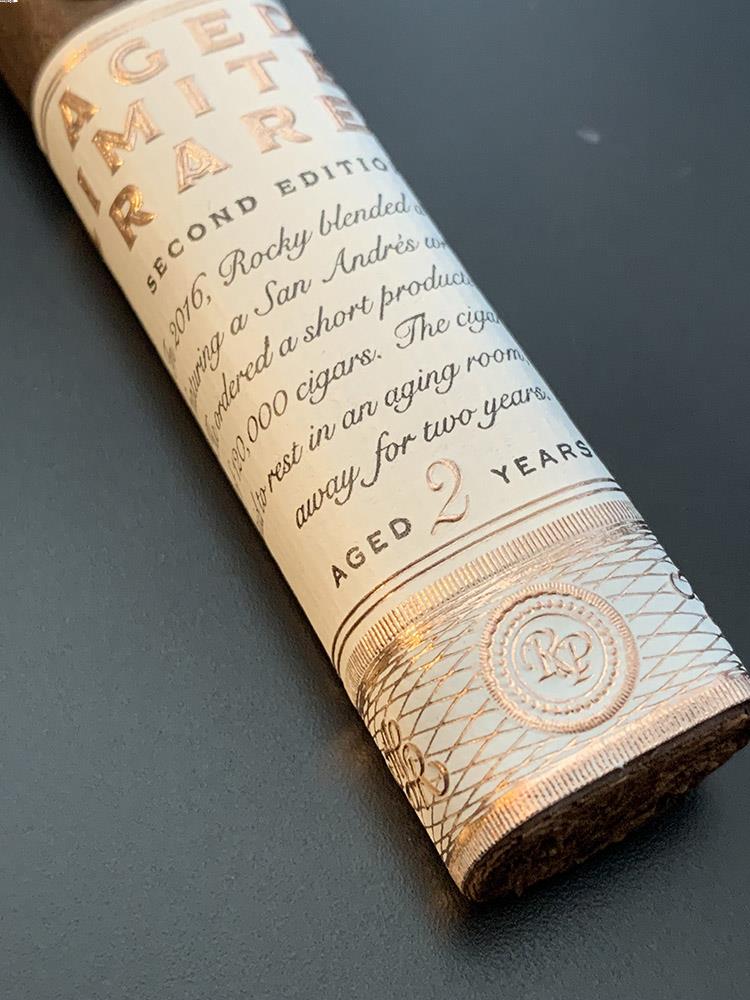 AGED
IMITE
RARE
SECOND EDITIO
2016, Rocky blended
a San Andrés
ordered a short produc
20,000 cigars. The ciga
to rest in an aging room,
away for two years.
AGED 2 YEARS
RP